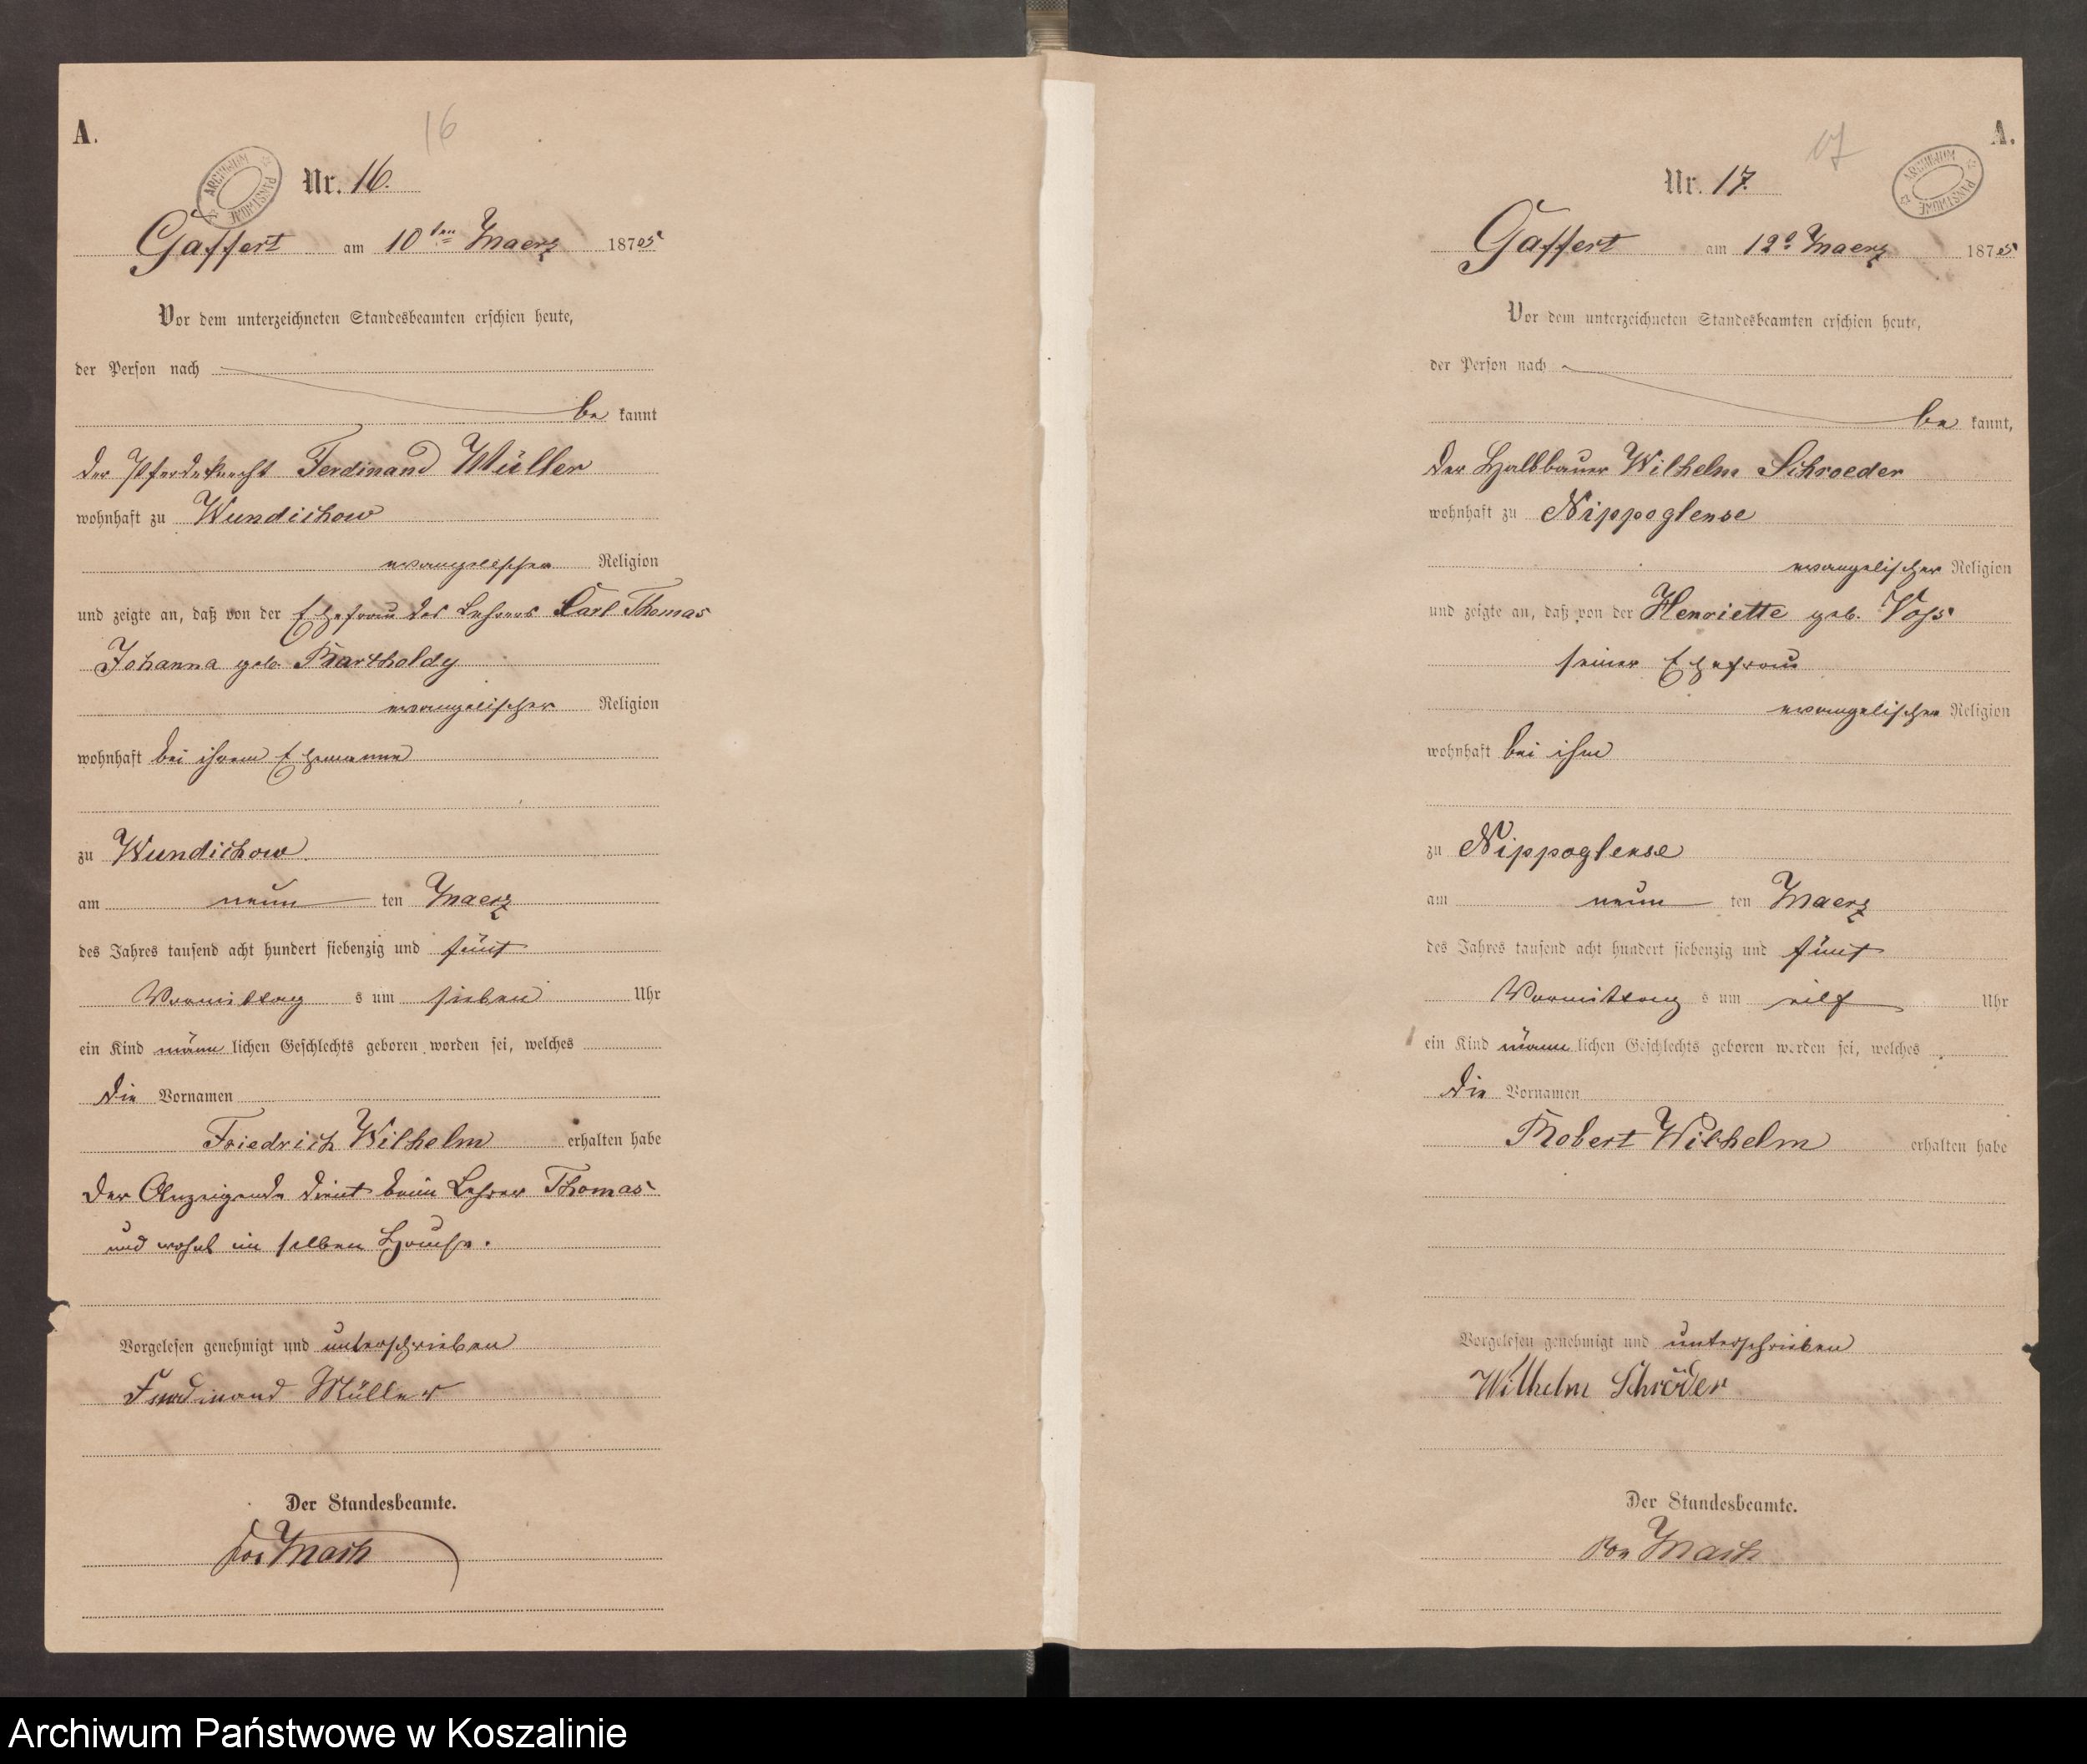 A.
16
ARCHIWUM PAŃSTWOWE
Nr. 16.
Gaffert am 10ten Maerz 1875
Vor dem unterzeichneten Standesbeamten erschien heute,
der Person nach
be kannt
der Pferdeknecht Ferdinand Müller
wohnhaft zu Wundichow
evangelischer Religion
und zeigte an, daß von der Ehefrau des Lehrers Carl Thomas
Johanna geb. Bartholdy
evangelischer Religion
wohnhaft bei ihrem Ehemanne
zu Wundichow
am neun ten Maerz
des Jahres tausend acht hundert siebenzig und fünf
Vormittag s um sieben Uhr
ein Kind männ lichen Geschlechts geboren worden sei, welches
die Vornamen
Friedrich Wilhelm erhalten habe
Der Anzeigende dient beim Lehrer Thomas
und wohnt im selben Hause.
Vorgelesen genehmigt und unterschrieben
Ferdinand Müller
Der Standesbeamte.
von Mach
A.
17
ARCHIWUM PAŃSTWOWE
Nr. 17.
Gaffert am 12t Maerz 1875
Vor dem unterzeichneten Standesbeamten erschien heute,
der Person nach
be kannt,
der Halbbauer Wilhelm Schroeder
wohnhaft zu Nippoglense
evangelischer Religion
und zeigte an, daß von der Henriette geb. Voss
seiner Ehefrau
evangelischer Religion
wohnhaft bei ihm
zu Nippoglense
am neun ten Maerz
des Jahres tausend acht hundert siebenzig und fünf
Vormittag s um eilf Uhr
ein Kind männ lichen Geschlechts geboren worden sei, welches
die Vornamen
Robert Wilhelm erhalten habe
Vorgelesen genehmigt und unterschrieben
Wilhelm Schröder
Der Standesbeamte.
von Mach
Archiwum Państwowe w Koszalinie